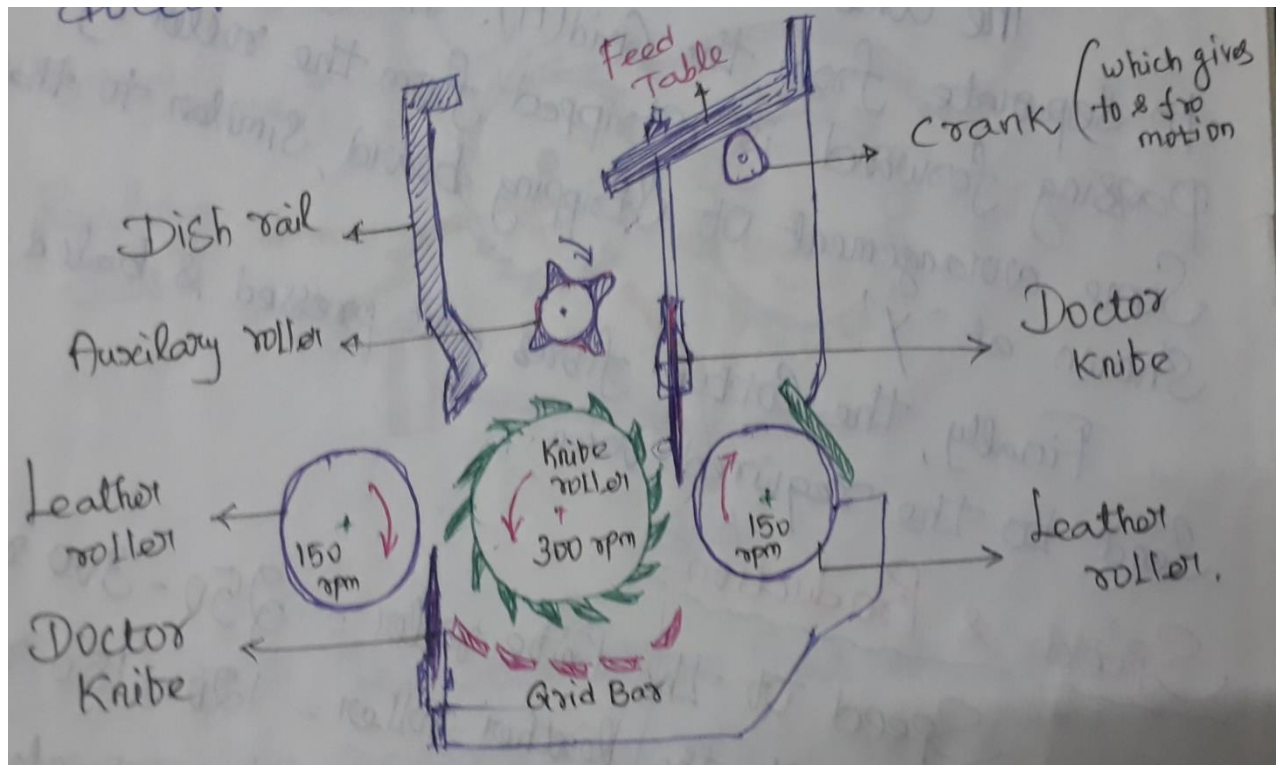 Feed
Table
Crank (which gives
to & fro
motion
Dish rail
Auxilary roller
Doctor
Knibe
Knibe
roller
300 rpm
Leather
roller
150
rpm
150
rpm
Leather
roller.
Doctor
Knibe
Grid Bar